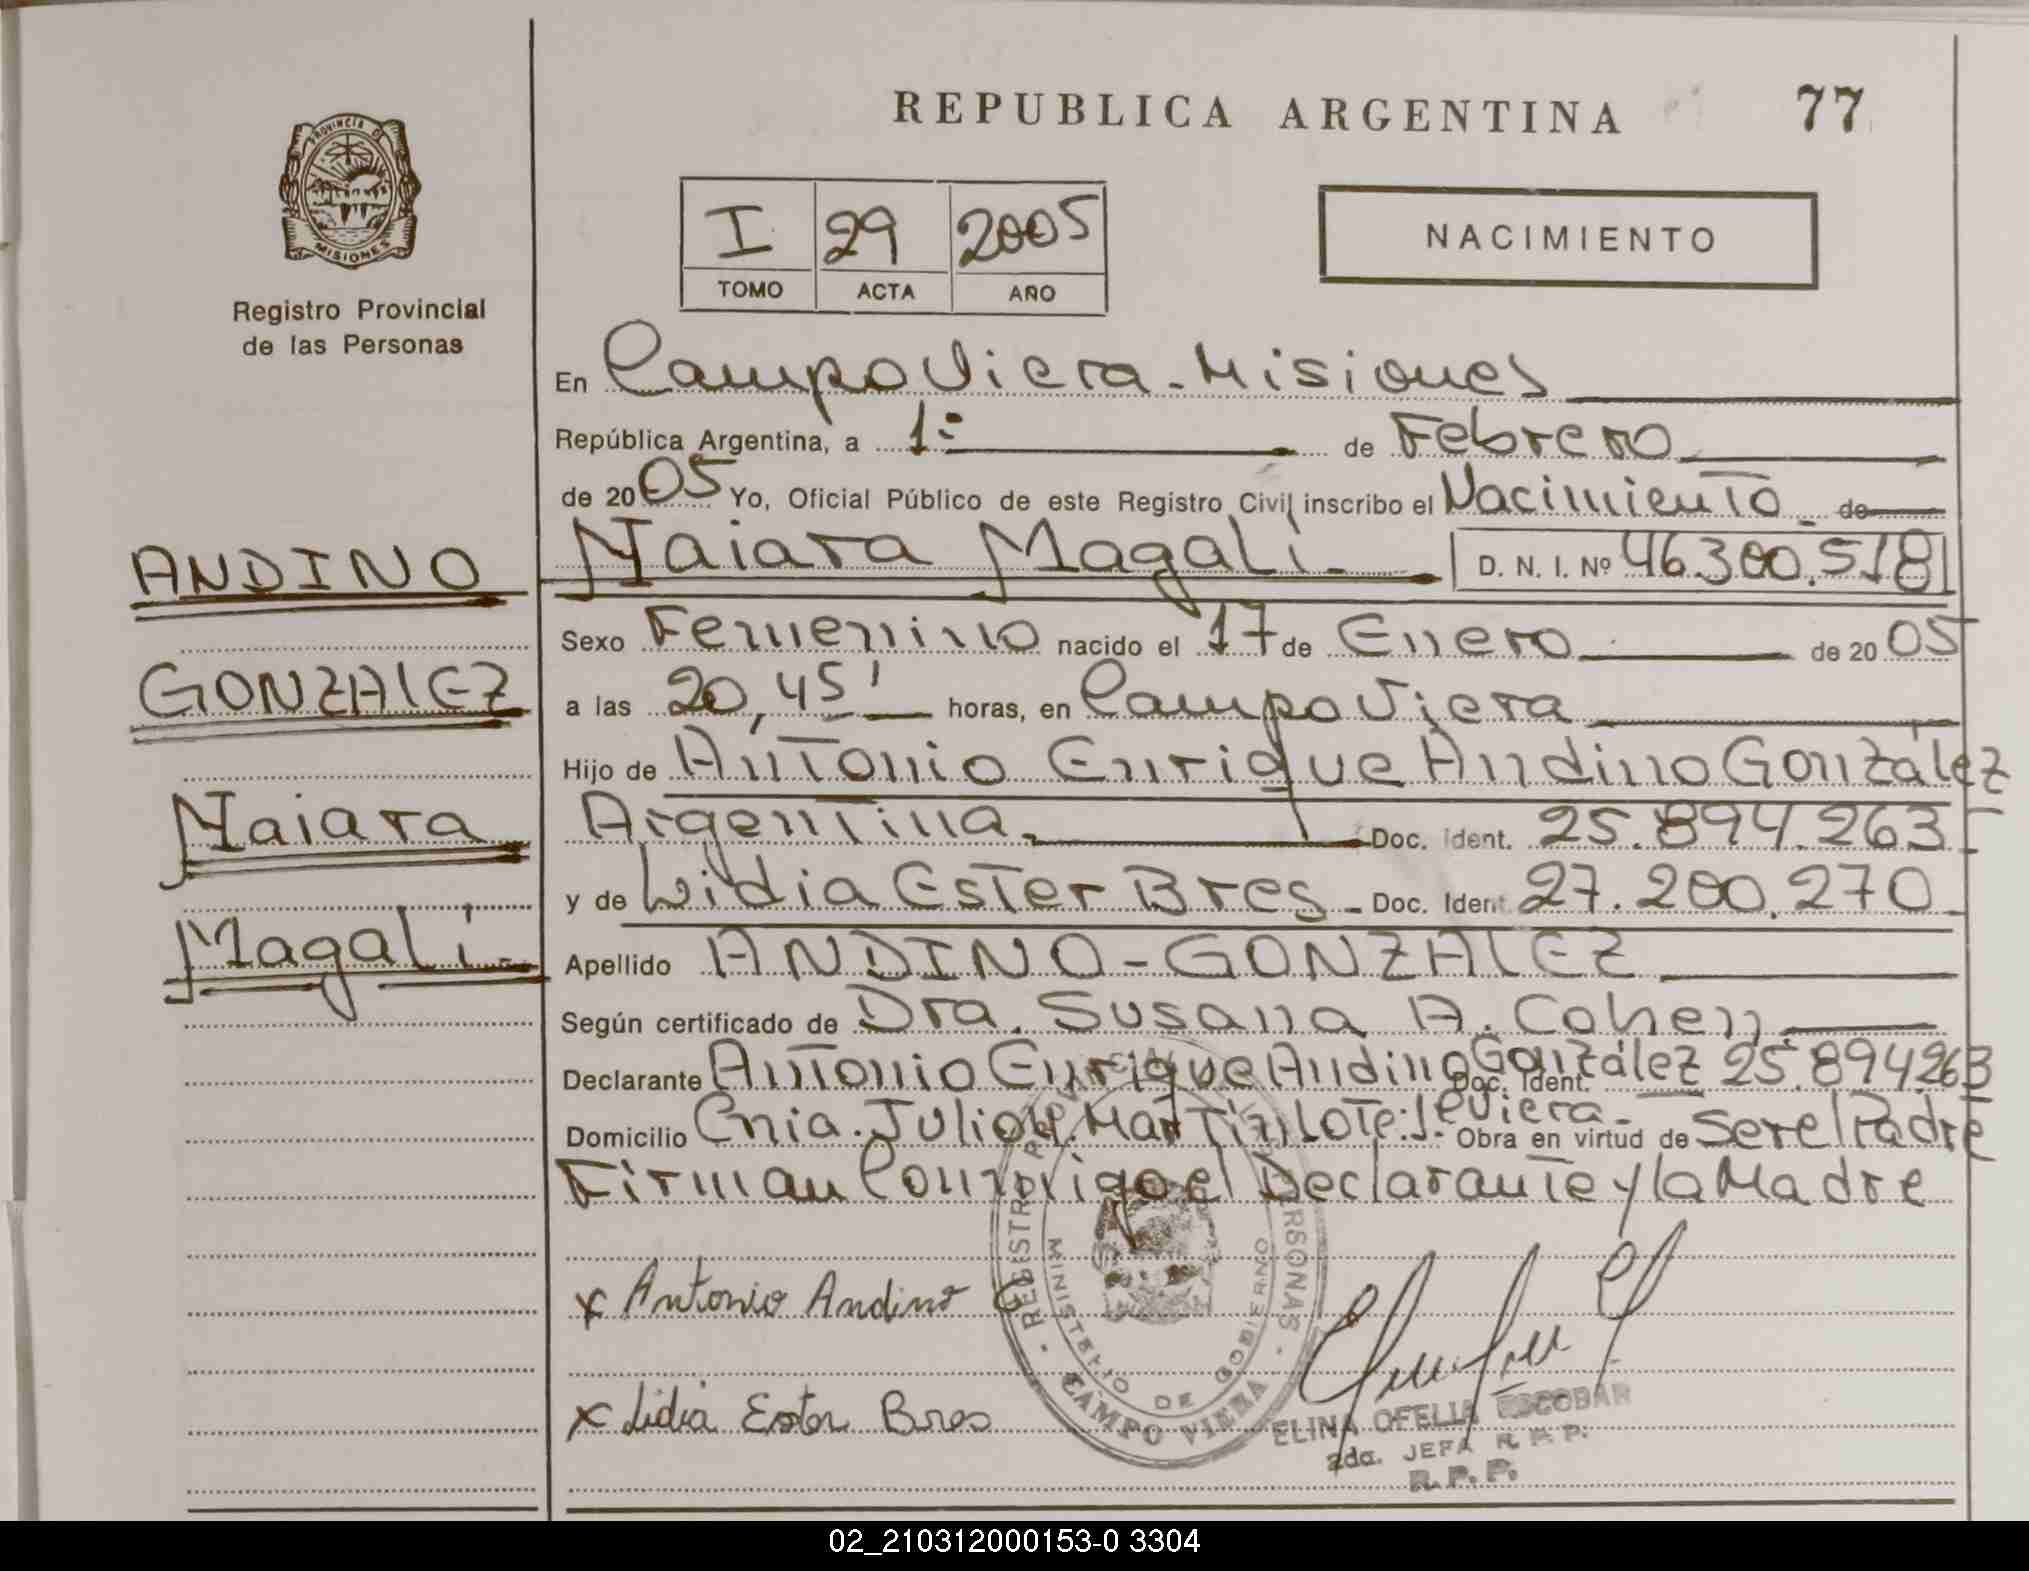 REPUBLICA ARGENTINA
77
PROVINCIA DE
MISIONES
Registro Provincial
de las Personas
I 29 2005
TOMO ACTA AÑO
NACIMIENTO
En Campo Viera - Misiones
República Argentina, a 1º de Febrero
de 2005 Yo, Oficial Público de este Registro Civil inscribo el Nacimiento de
Naiara Magalí - D. N. I. Nº 46.300.518
ANDINO
GONZALEZ
Naiara
Magalí -
Sexo Femenino nacido el 17 de Enero de 2005
a las 20,45' horas, en Campo Viera
Hijo de Antonio Enrique Andino González
Argentina. Doc. Ident. 25.894.263
y de Lidia Ester Bres - Doc. Ident. 27.200.270
Apellido ANDINO - GONZALEZ
Según certificado de Dra. Susana A. Cohen
Declarante Antonio Enrique Andino González Doc. Ident. 25.894.263
Domicilio Cnia. Julio U. Martin Lote: 1. CViera - Obra en virtud de Ser el Padre
Firman Conmigo el Declarante y la Madre
x Antonio Andino G
x Lidia Ester Bres
CAMPO VIERA
MINISTERIO DE GOBIERNO
ELINA OFELIA ESCOBAR
2da. JEFA R. P. P.
R. P. P.
02_210312000153-0 3304